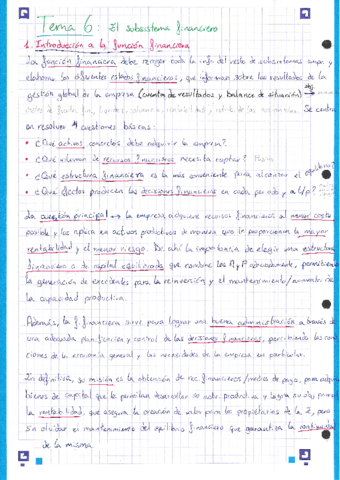 Tema 6: El subsistema financiero
1. Introducción a la función financiera
La función financiera debe recoger toda la info del resto de subsistemas empr. y
elabora los diferentes estados financieros, que informan sobre los resultados de la
gestión global de la empresa (cuenta de resultados y balance de situación)
Se centra
en resolver 4 cuestiones básicas:
• ¿Qué activos concretos debe adquirir la empresa?
• ¿Qué volumen de recursos financieros necesita captar?
• ¿Qué estructura financiera es la más conveniente para alcanzar el equilibrio?
• ¿Qué efectos producen las decisiones financieras en cada periodo y a l/p?
La cuestión principal → la empresa adquiere recursos financieros al menor coste
posible, y los aplica en activos productivos de manera que le proporcionen la mayor
rentabilidad y el menor riesgo. De ahí la importancia de elegir una estructura
financiera o de capital equilibrada que combine los A y P adecuadamente, permitiendo
la generación de excedentes para la reinversión y el mantenimiento/aumento de
la capacidad productiva.
Además, la f. financiera sirve para lograr una buena administración a través de
una adecuada planificación y control de las decisiones financieras,
ciones de la economía general y las necesidades de la empresa en particular.
En definitiva, su misión es la obtención de rec. financieros/medios de pago, para adquirir
bienes de capital que le permitan desarrollar su activ. productiva y
la rentabilidad, que asegura la creación de valor para los propietarios de la E, pero
sin olvidar el mantenimiento del equilibrio financiero que garantiza la continuidad
de la misma.